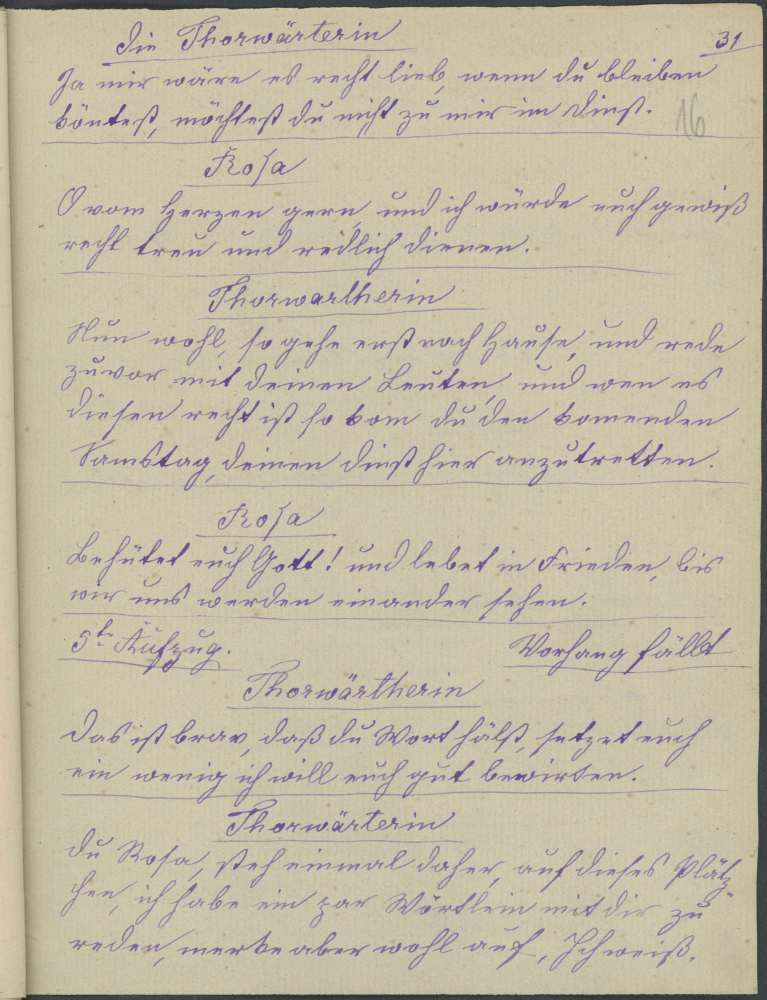 Die Thorwärterin
31
Ja mir wäre es recht lieb, wenn du bleiben
köntest, möchtest du nicht zu mir im Dinst.
16
Rosa
O vom Herzen gern, und ich würde euch gewiß
recht treu und redlich dienen.
Thorwartherin
Nun wohl, so gehe erst nach Hause, und rede
zuvor mit deinen Leuten, und wen es
diesen recht ist so kom du den komenden
Samstag, deinen Dinst hier anzutretten.
Rosa
Behütet euch Gott! und lebet in Frieden, bis
wir uns werden einander sehen.
5te Aufzug.
Vorhang fällt
Thorwärtherin
Das ist brav, daß du Wort hälst, setzet euch
ein wenig ich will euch gut bewirten.
Thorwärterin
Du Rosa, steh einmal daher, auf dieses Plätz
chen, ich habe ein par Wörtlein mit dir zu
reden, merke aber wohl auf, Ich weiß,